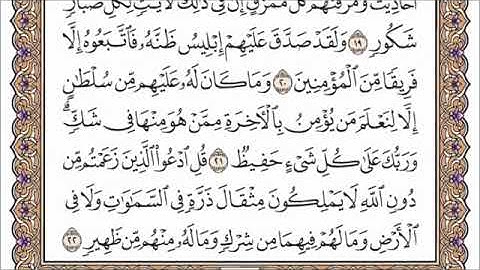 أَحَادِيثَ وَمَزَّقْنَٰهُمْ كُلَّ مُمَزَّقٍ إِنَّ فِي ذَٰلِكَ لَأٓيَٰتٖ لِّكُلِّ صَبَّارٖ
شَكُورٖ ١٩ وَلَقَدْ صَدَّقَ عَلَيْهِمْ إِبْلِيسُ ظَنَّهُۥ فَٱتَّبَعُوهُ إِلَّا
فَرِيقٗا مِّنَ ٱلْمُؤْمِنِينَ ٢٠ وَمَا كَانَ لَهُۥ عَلَيْهِم مِّن سُلْطَٰنٍ
إِلَّا لِنَعْلَمَ مَن يُؤْمِنُ بِٱلْأٓخِرَةِ مِمَّنْ هُوَ مِنْهَا فِي شَكّٖۗ
وَرَبُّكَ عَلَىٰ كُلِّ شَيْءٍ حَفِيظٞ ٢١ قُلِ ٱدْعُوا۟ ٱلَّذِينَ زَعَمْتُم مِّن
دُونِ ٱللَّهِ لَا يَمْلِكُونَ مِثْقَالَ ذَرَّةٖ فِي ٱلسَّمَٰوَٰتِ وَلَا فِي
ٱلْأَرْضِ وَمَا لَهُمْ فِيهِمَا مِن شِرْكٖ وَمَا لَهُۥ مِنْهُم مِّن ظَهِيرٖ ٢٢